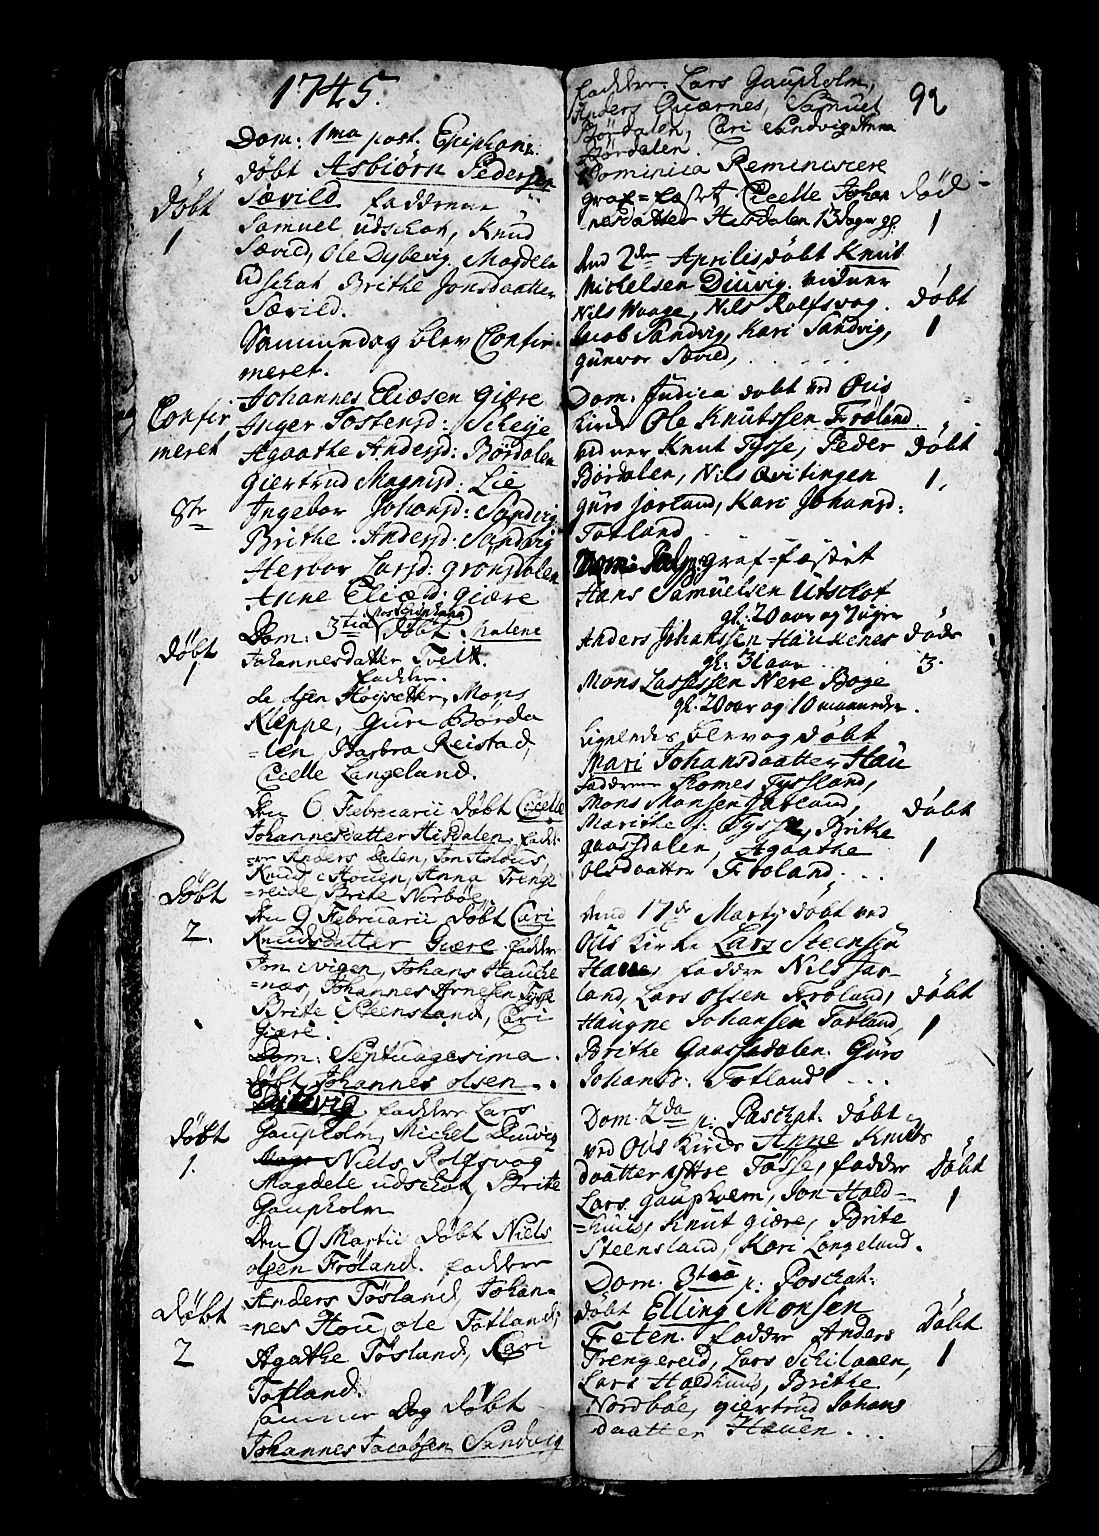 1745.
Dom: 1ma post. Epiphani:
døbt Asbiørn Pedersen
Døbt
1
Sævild faddrene
Samuel udschot, Knud
Sævild, Ole Dyberig, Magdela
udschot Brithe Jonsdaatter
Sævild.
Sammendag blev Confir-
meret.
Confir
meret
8te
Johannes Eliæsen Giære
Inger Tostensd: Scheije
Agaathe Andersd: Børdalen
Giertrud Magnisd: Lie
Ingebor Johansd: Sandvig
Brithe Andersd: Sandvig
Herbor Larsd: Gronsdalen
Anne Eliæd: Giære
Dom: 3tia post Epiphana døbt Malene
Døbt
1
Johannesdatter Tvelt.
faddere.
ole olsen Høysetter, Mons
Kleppe, Guri Børda
=len, Barbra Reistad,
Cicelle Langeland.
Den 6 Februarii døbt Cicelle
Johannesdatter Hisdalen, fadde
=re Anders Dalen, Jon
Knud Houen, Anna Trenge
=reide, Brite Norbøe
Døbt
2.
den 9 Februarii døbt Cari
Knudsdatter Giære. faddere
Jon ivigen, Johans Hauke
=næs, Johannes Arnesen Tysse
Brite Steensland, Cari
Giære.
Dom: Septuagesima.
døbt Johannes olsen
faddere Lars
Døbt
1.
Gaupholm, Michel Diuvig
Niels Rolfsvog
Magdele udschot, Brite
Gaupholm
Den 9 Martii døbt Niels
olsen Frøland. faddere
Døbt
2
Anders Tøsland, Johan-
=nes Hou, ole Totland,
Agathe Tøsland, Kari
Totland.
samme Dag døbt
Johannes Jacobsen Sandvig
92
faddere Lars Gaupholm,
Anders Quærnes, Samuel
Børdalen, Cari Sandvig Anna
Børdalen.
Dominica Reminiscere
graf=fæst Cicelle Johan
nesdatter Hisdalen 13 dage gl.
død
1
dend 2den Aprilis døbt Knut
Michelsen Diuvig. vidner
Nils Waage, Nils Rolfsvog.
Jacob Sandvig, Kari Sandvig,
Gunvor Sævild,
Døbt
1
Dom: Judica døbt ved Ous
Kirke Ole Knutssen Frøland.
vidner Knut Tysse, Peder
Børdalen, Nils Qvitingen
Guro Jarland, Kari Johansd:
Totland
Døbt
1.
Dom: Palm: graf=fæstet
Hans Samuelsen Utschot
gl: 20 aar og 7 uger
Anders Johanssen Haukenes
gl. 31 aar
Mons Lassessen Nere Boge
gl. 20 aar og 10 maaneder.
døde
3.
Ligeledes blev og døbt
Mari Johansdaatter Hau
faddrene Tomes Tyssland,
Mons Monsen Totland,
Marithe Tysse, Brithe
Gaassdalen, Agaathe
Olsdaatter Frøland...
døbt
1
dend 17de Martj døbt ved
Ous Kirke Lars Steensen
Haue, faddre Nils Jar-
land, Lars Olsen Frøland,
Haugne Johansen Totland,
Brithe Gaassdalen. Guro
Johansd: Totland
døbt
1
Dom. 2da p: Paschat. døbt
ved Ous Kirke Anne Knuds
daatter Yttre Tøsse, faddre
Lars Gaupholm, Jon Hald-
=huus, Knut Giære, Brite
Steensland, Kari Langeland.
Døbt
1
Dom. 3tia p: Paschat:
døbt Elling Monsen
Feten. faddre Anders
Trengereid, Lars
Lars Haldhuus, Brithe
Nordbøe, Giertrud Johans
daatter Hauen...
Døbt
1